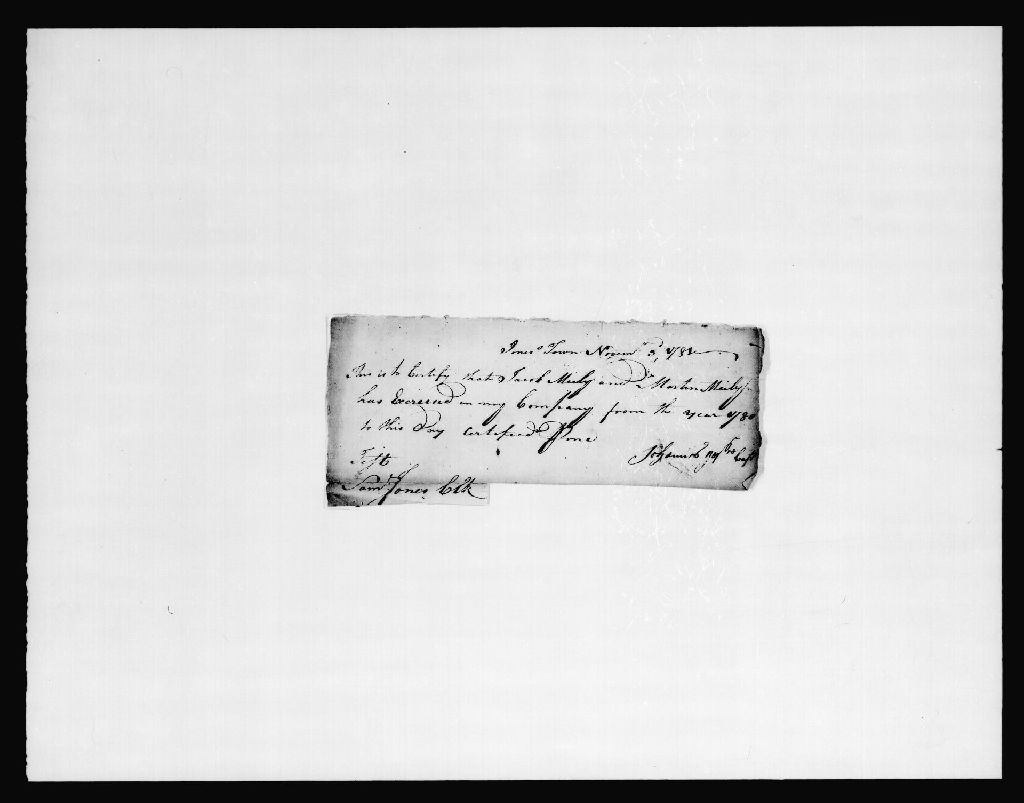 Jones Town Novemr 3, 178
This is to Certify that Jacob Meily and Martin Meily
has Excersed in my Company from the year 1780
to this Day certifeed Pr me
Test
Saml Jones Clk